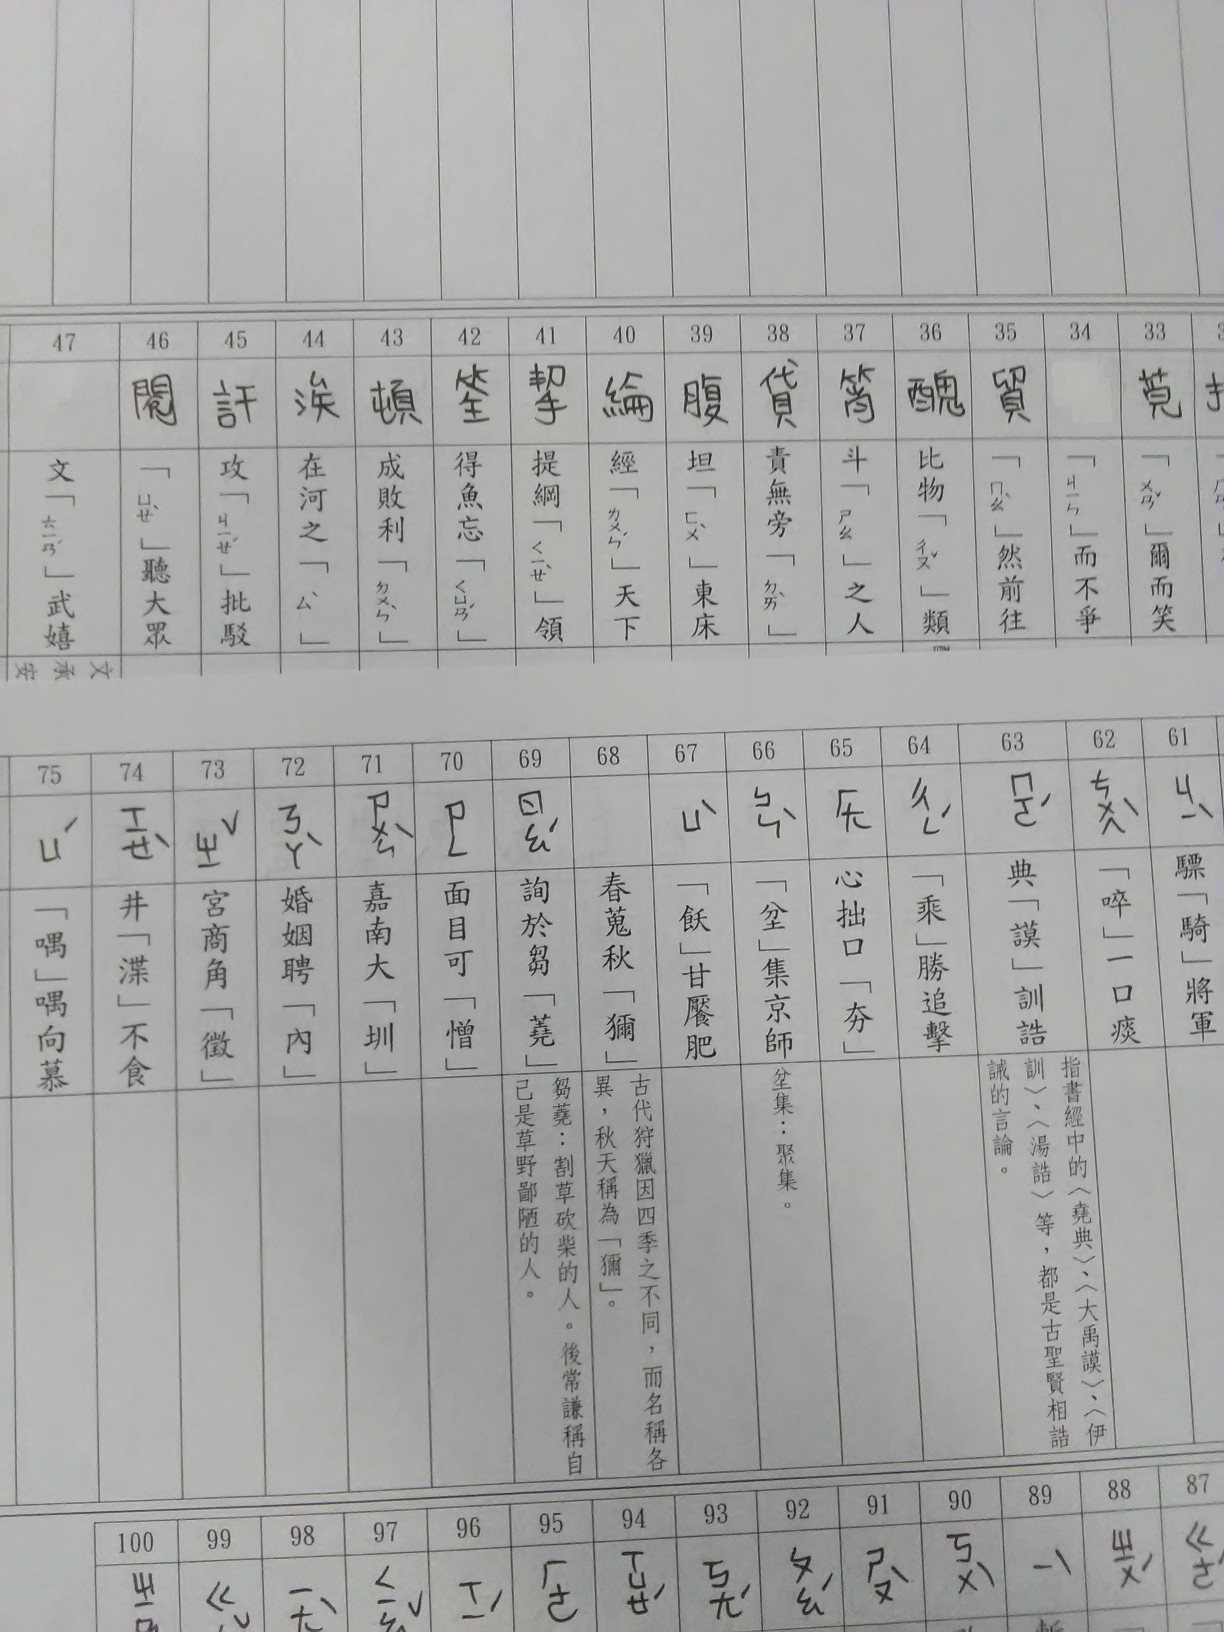 33
莞
「ㄨㄢˇ」爾而笑
34
「ㄐㄧㄣ」而不爭
35
貿
「ㄇㄠˋ」然前往
36
醜
比物「ㄔㄡˇ」類
37
筲
斗「ㄕㄠ」之人
38
貸
責無旁「ㄉㄞˋ」
39
腹
坦「ㄈㄨˋ」東床
40
綸
經「ㄌㄨㄣˊ」天下
41
挈
提綱「ㄑㄧㄝˋ」領
42
筌
得魚忘「ㄑㄩㄢˊ」
43
頓
成敗利「ㄉㄨㄣˋ」
44
涘
在河之「ㄙˋ」
45
訐
攻「ㄐㄧㄝˊ」批駁
46
閱
「ㄩㄝˋ」聽大眾
47
文「ㄊㄧㄢˊ」武嬉
61
ㄐㄧˋ
驃「騎」將軍
62
ㄘㄨㄟˋ
「啐」一口痰
63
ㄇㄛˊ
典「謨」訓誥
指書經中的〈堯典〉、〈大禹謨〉、〈伊
訓〉、〈湯誥〉等，都是古聖賢相誥
誡的言論。
64
ㄔㄥˊ
「乘」勝追擊
65
ㄏㄤ
心拙口「夯」
66
ㄅㄣˋ
「坌」集京師
坌集：聚集。
67
ㄩˋ
「飫」甘饜肥
68
春蒐秋「獮」
古代狩獵因四季之不同，而名稱各
異，秋天稱為「獮」。
69
ㄖㄠˊ
詢於芻「蕘」
芻蕘：割草砍柴的人。後常謙稱自
己是草野鄙陋的人。
70
ㄗㄥ
面目可「憎」
71
ㄗㄨㄣˋ
嘉南大「圳」
72
ㄋㄚˋ
婚姻聘「內」
73
ㄓˇ
宮商角「徵」
74
ㄒㄧㄝˋ
井「渫」不食
75
ㄩˊ
「喁」喁向慕
87
88
ㄓㄨˊ
89
ㄧˋ
90
ㄎㄨˋ
91
ㄗㄡˋ
92
ㄆㄠˊ
93
ㄎㄤˊ
94
ㄒㄩㄝˊ
95
ㄏㄜˊ
96
ㄒㄧˊ
97
ㄑㄧㄠˇ
98
ㄧㄤˋ
99
100